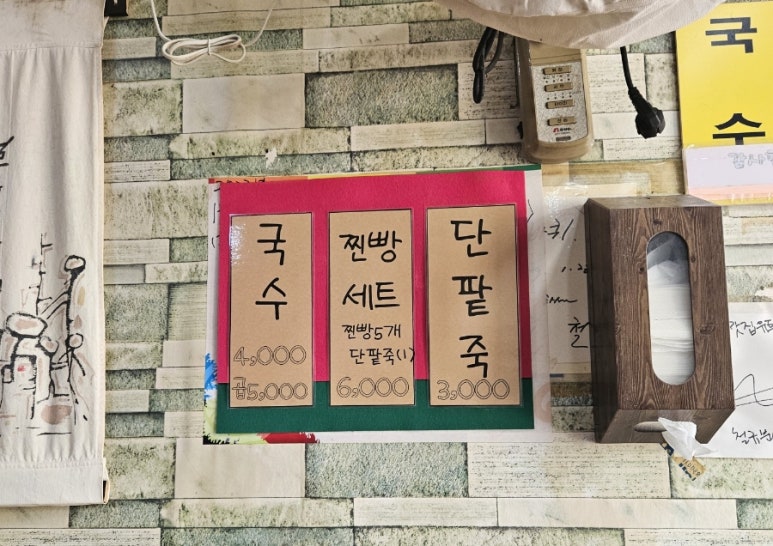 국
수
4,000
곱5,000
찐빵
세트
찐빵5개
단팥죽(1)
6,000
단
팥
죽
3,000
국
수